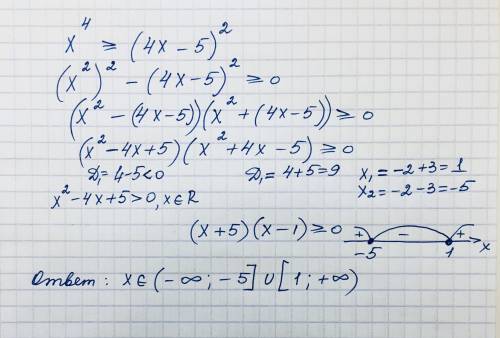 x⁴ ≥ (4x - 5)²
(x²)² - (4x - 5)² ≥ 0
(x² - (4x - 5))(x² + (4x - 5)) ≥ 0
(x² - 4x + 5)(x² + 4x - 5) ≥ 0
D₁ = 4 - 5 < 0 D₁ = 4 + 5 = 9 x₁ = -2 + 3 = 1
x² - 4x + 5 > 0, x ∈ R x₂ = -2 - 3 = -5
(x + 5)(x - 1) ≥ 0 + - +
-5 1 x
Ответ: x ∈ (-∞; -5] ∪ [1; +∞)